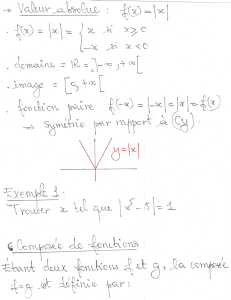 → Valeur absolue : f(x) = |x|
. f(x) = |x| = { x si x ≥ 0
-x si x < 0
. domaine = ℝ = ]-∞, +∞[
. image = [0, +∞[
. fonction paire f(-x) = |-x| = |x| = f(x)
→ symétrie par rapport à Oy
y = |x|
Exemple 1.
Trouver x tel que |x² - 5| = 1
Composée de fonctions
Étant deux fontions f et g, la composée
fog est définie par :